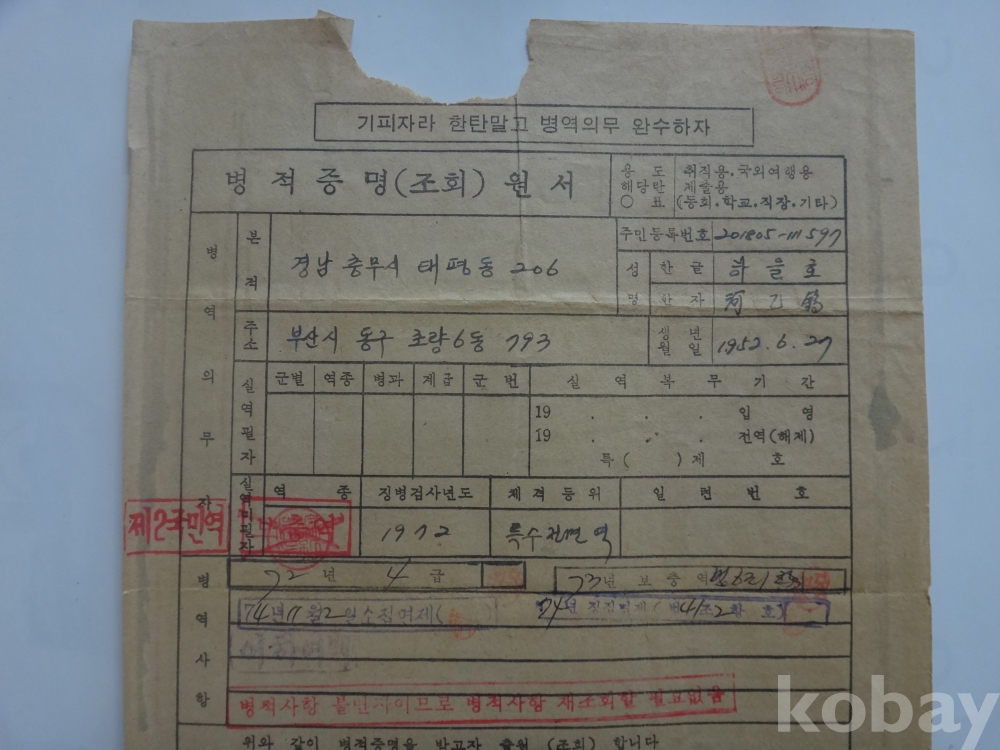 기피자라 한탄말고 병역의무 완수하자
병적증명(조회)원서
용도 취직용.국외여행용
해당란 제출용
○표 (등회.학교.직장.기타)
병역의무자
본적 경남 충무시 태평동 206
주민등록번호
성명 한글 하을호
한자
주소 부산시 동구 초량6동 793
생년월일 1952.6.27
실역필자 군별 역종 병과 계급 군번 실역복무기간
19 . . . 입영
19 . . . 전역(해제)
특( )제 호
실역미필자 역종 징병검사년도 체격등위 일련번호
제2국민역 1972
병역사항
72년 4급
73년 보충역
74년
병적사항 불변자이므로 병적사항 재조회할 필요없음
위와 같이 병적증명을 받고자 출원 (조회) 합니다
kobay